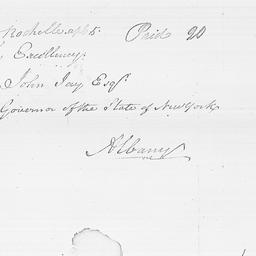 Rochelle Paid 20
Excellency
John Jay Esqr
Governor of the State of New York
Albany